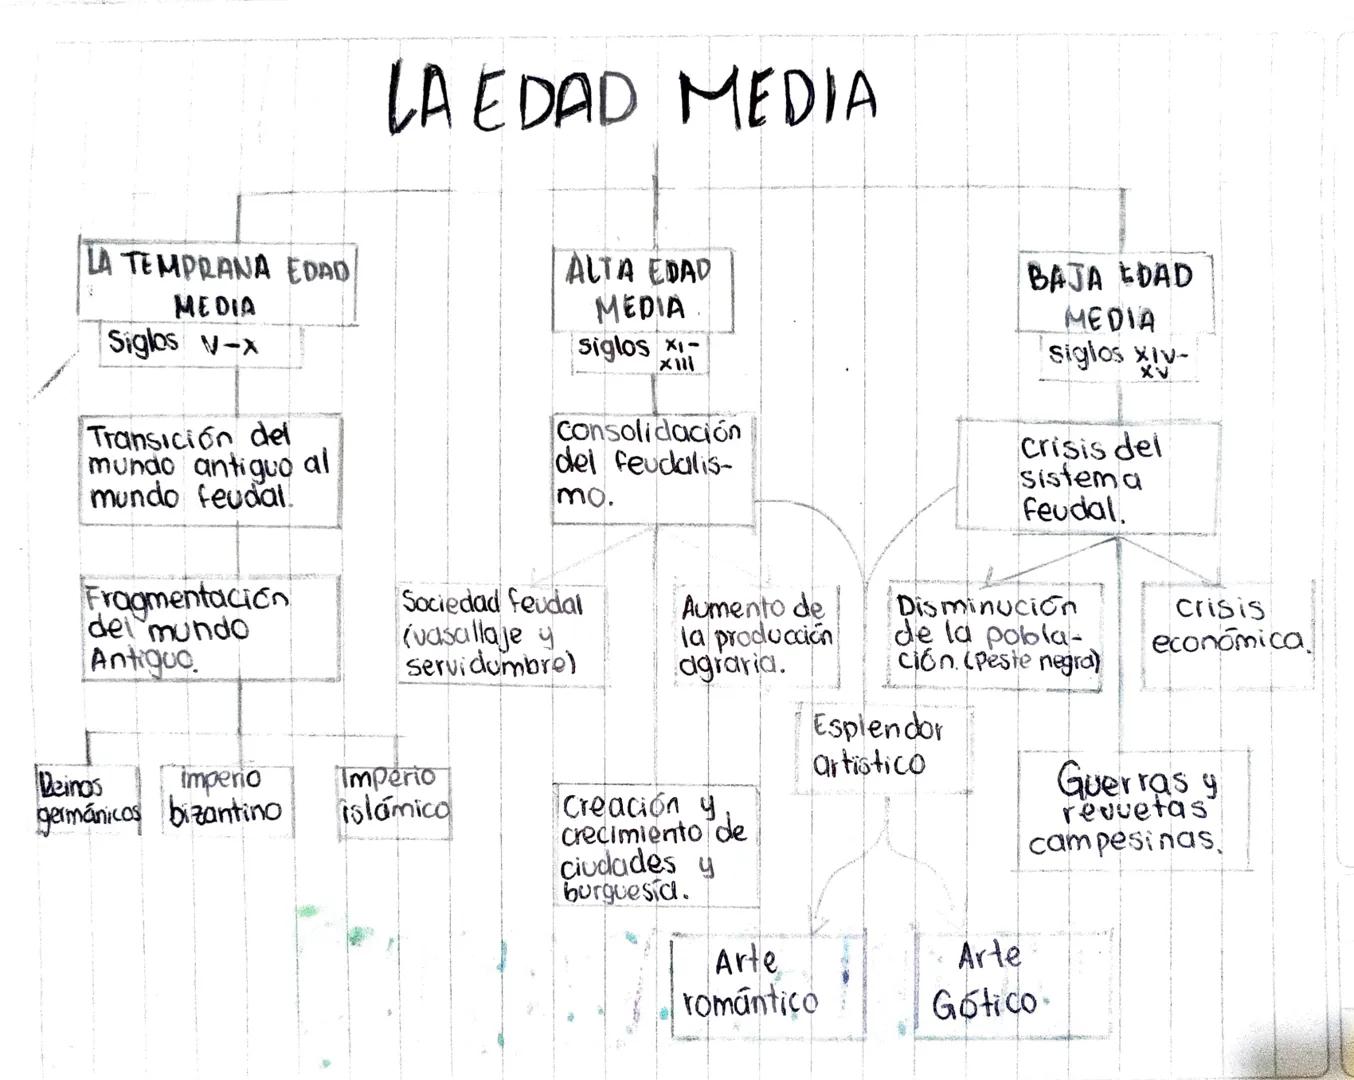 LA EDAD MEDIA
LA TEMPRANA EDAD
MEDIA
Siglos V-X
Transición del
mundo antiguo al
mundo feudal.
Fragmentación
del mundo
Antiguo.
Reinos
germánicos
Imperio
bizantino
Imperio
islámico
ALTA EDAD
MEDIA
siglos XI-
XIII
Consolidación
del feudalis-
mo.
Sociedad feudal
(vasallaje y
servidumbre)
Aumento de
la producción
agraria.
Creación y
crecimiento de
ciudades y
burguesía.
Esplendor
artístico
Arte
romántico
Arte
Gótico.
BAJA EDAD
MEDIA
siglos XIV-
XV
Crisis del
sistema
feudal.
Disminución
de la pobla-
ción. (Peste negra)
Crisis
económica.
Guerras y
revuetas
campesinas.